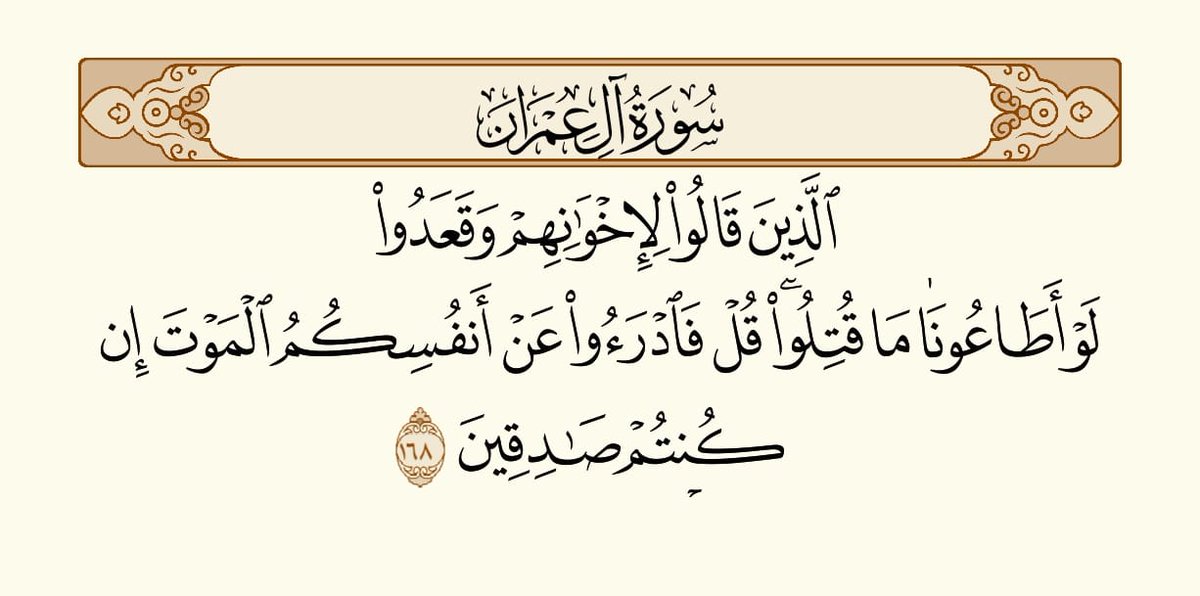 سُورَةُ آلِ عِمْرَان
ٱلَّذِينَ قَالُوا۟ لِإِخْوَٰنِهِمْ وَقَعَدُوا۟
لَوْ أَطَاعُونَا مَا قُتِلُوا۟ ۗ قُلْ فَٱدْرَءُوا۟ عَنْ أَنفُسِكُمُ ٱلْمَوْتَ إِن
كُنتُمْ صَٰدِقِينَ ١٦٨